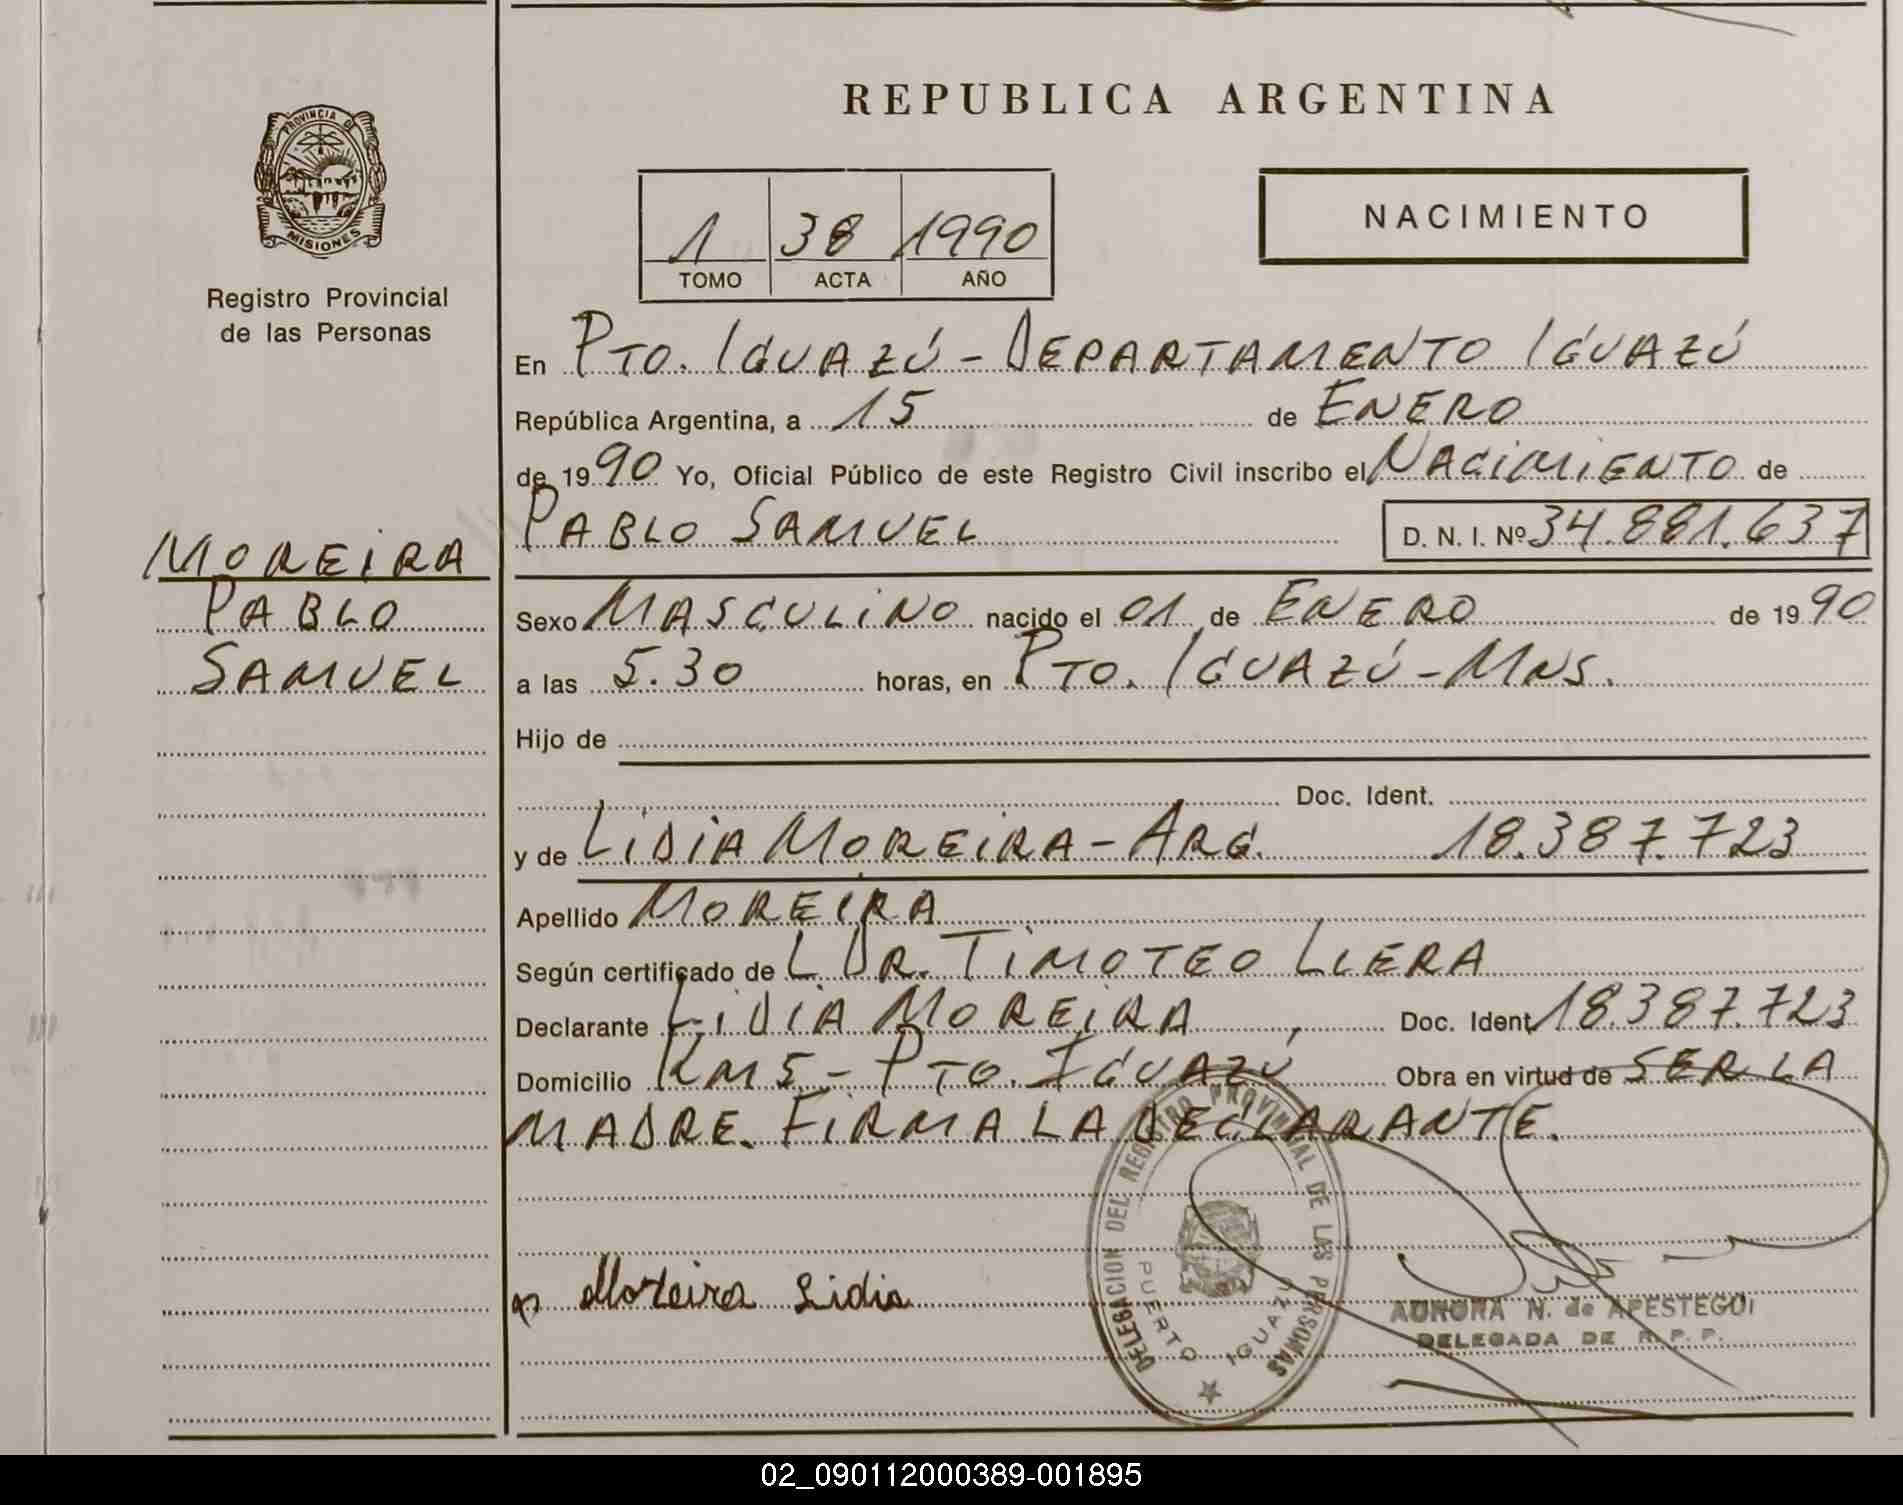 REPUBLICA ARGENTINA
PROVINCIA DE
MISIONES
Registro Provincial
de las Personas
1 38 1990
TOMO ACTA AÑO
NACIMIENTO
En PTO. IGUAZÚ - DEPARTAMENTO IGUAZÚ
República Argentina, a 15 de ENERO
de 1990 Yo, Oficial Público de este Registro Civil inscribo el NACIMIENTO de
PABLO SAMUEL D. N. I. Nº 34.881.637
MOREIRA
PABLO
SAMUEL
Sexo MASCULINO nacido el 01 de ENERO de 1990
a las 5.30 horas, en PTO. IGUAZÚ - MNS.
Hijo de
Doc. Ident.
y de LIDIA MOREIRA - ARG. 18.387.723
Apellido MOREIRA
Según certificado de L. DR. TIMOTEO LLERA
Declarante LIDIA MOREIRA, Doc. Ident 18.387.723
Domicilio KM 5 - PTO. IGUAZÚ Obra en virtud de SER LA
MADRE. FIRMA LA DECLARANTE.
Moreira Lidia
DELEGACION DEL REGISTRO PROVINCIAL DE LAS PERSONAS
PUERTO IGUAZU
AURORA N. de APESTEGUI
DELEGADA DE R. P. P.
02_090112000389-001895